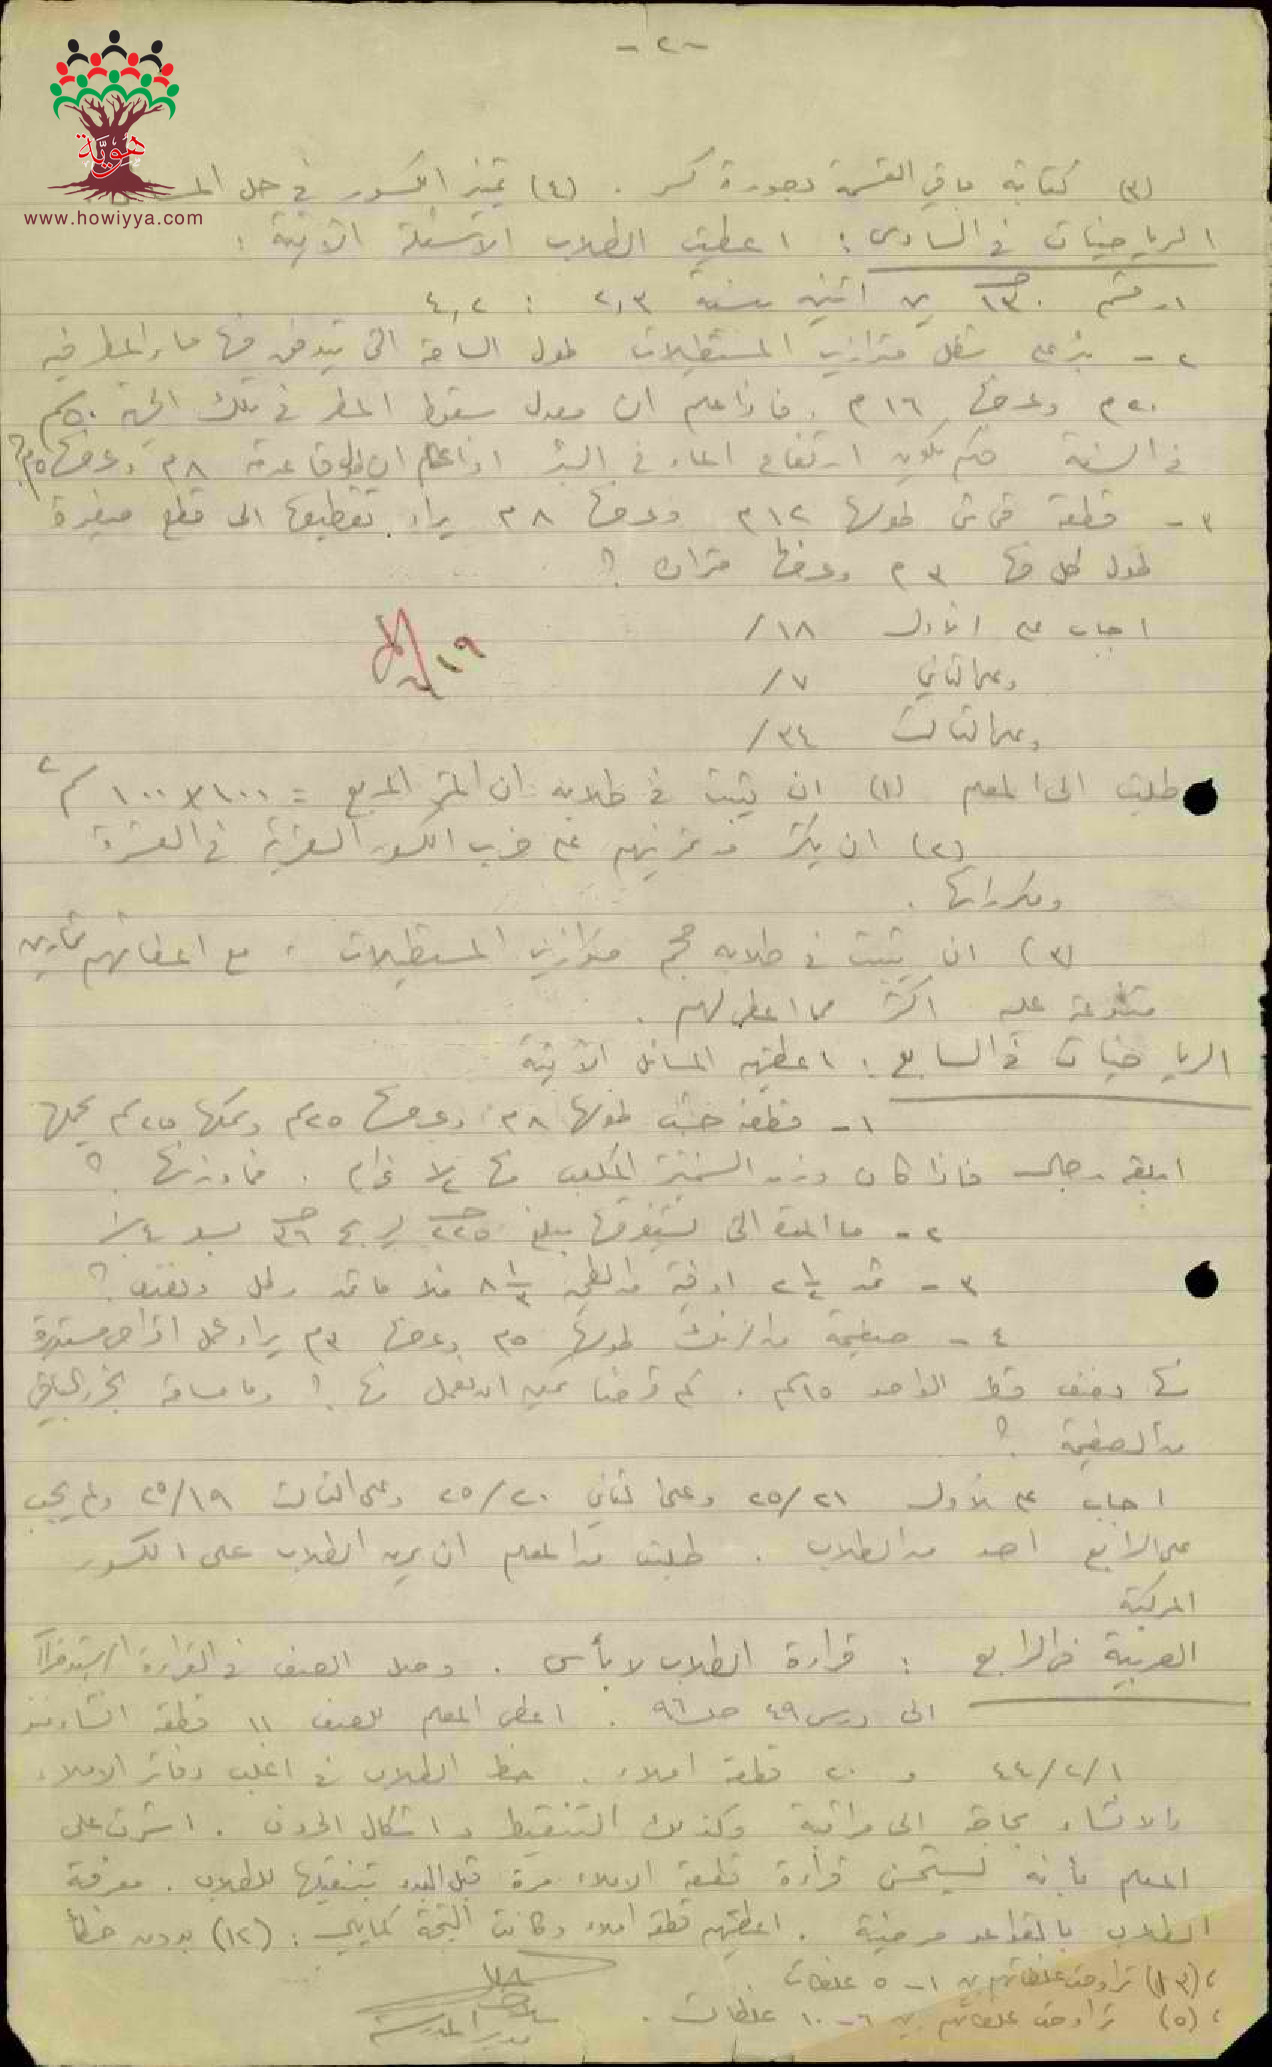 -٢-
هَوِيَّة
www.howiyya.com
(٣) كتابة باقي القسمة بصورة كسر . (٤) تمييز الكسور في حل
الرياضيات في السادس : اعطيت الطلاب الاسئلة الآتية :
١- قسم ١٣٠ بين اثنين بنسبة ٢,٣ : ٤,٢
٢- بئر على شكل متوازي المستطيلات طول الساحة التي يتدفق منها ماء المطر فيه
٢٠م وعرضها ١٦م ، فاذا علم ان معدل سقوط المطر في تلك الجهة ٥٠سم
في السنة فكم يكون ارتفاع الماء في البئر اذا علم ان طول قاعدته ٨م وعرضها ٥م؟
٣- قطعة قماش طولها ١٢م وعرضها ٨م يراد تقطيعها الى قطع صغيرة
طول كل منها ٣م وعرضها متران ؟
اجاب على الاول ١٨/
وعلى الثاني ٧/
وعلى الثالث ٣٤/
١٩
طلبت الى المعلم (١) ان يثبت في طلابه ان المتر المربع = ١٠٠×١٠٠ سم٢
(٢) ان يكثر من تمرينهم على ضرب الكسور العشرية في العشرة
ومكرراتها .
(٣) ان يثبت في طلابه حجم متوازي المستطيلات ، مع اعطائهم تمارين
متنوعة عليه اكثر مما اعطى لهم .
الرياضيات في السابع : اعطيتهم المسائل الآتية
١- قطعة خشب طولها ٨م وعرضها ٢٥سم وسمكها ٢٥سم يحملها
اربعة رجال فاذا كان وزن السنتمتر المكعب منها غرام . فما وزنها ؟
٢- ما المدة التي يستغرقها مبلغ ٢٢٥ ليربح ٣٦ بسعر ٤٪
٣- ثمن ٢ ١/٤ اوقية من الطحين ٨ ١/٣ فلا ما ثمن رطل ونصف ؟
٤- صفيحة من الزنك طولها ٥م وعرضها ٣م يراد عمل اقراص مستديرة
منها نصف قطر الواحد ١٥سم . كم قرصا يمكن ان نعمل منها ؟ وما مساحة الجزء الباقي
من الصفيحة ؟
اجاب على الاول ٢٥/٢١ وعلى الثاني ٢٥/٢٠ وعلى الثالث ٢٥/١٩ ولم يجب
على الرابع احد من الطلاب . طلبت من المعلم ان يمرن الطلاب على الكسور
المركبة
العربية في الرابع : قراءة الطلاب لا بأس . وصل الصف في القراءة
الى درس ٤٩ ص ٩٦ . اعطى المعلم للصف ١١ قطعة انشاء منذ
٤٤/٢/١ و ٢٠ قطعة املاء . خط الطلاب في اغلب دفاتر الاملاء
والانشاء بحاجة الى مراقبة وكذلك التنقيط واشكال الحروف . اشرت على
المعلم بأنه يستحسن قراءة قطعة الاملاء مرة قبل البدء بتنقيلها للطلاب . معرفة
الطلاب بالقواعد مرضية . اعطيتهم قطعة املاء وكانت النتيجة كما يلي : (١٢) بدون خطأ
، (١٣) تراوحت غلطاتهم بين ١-٥ غلطات .
، (٥) تراوحت غلطاتهم بين ٦-١٠ غلطات .
مدير المدرسة